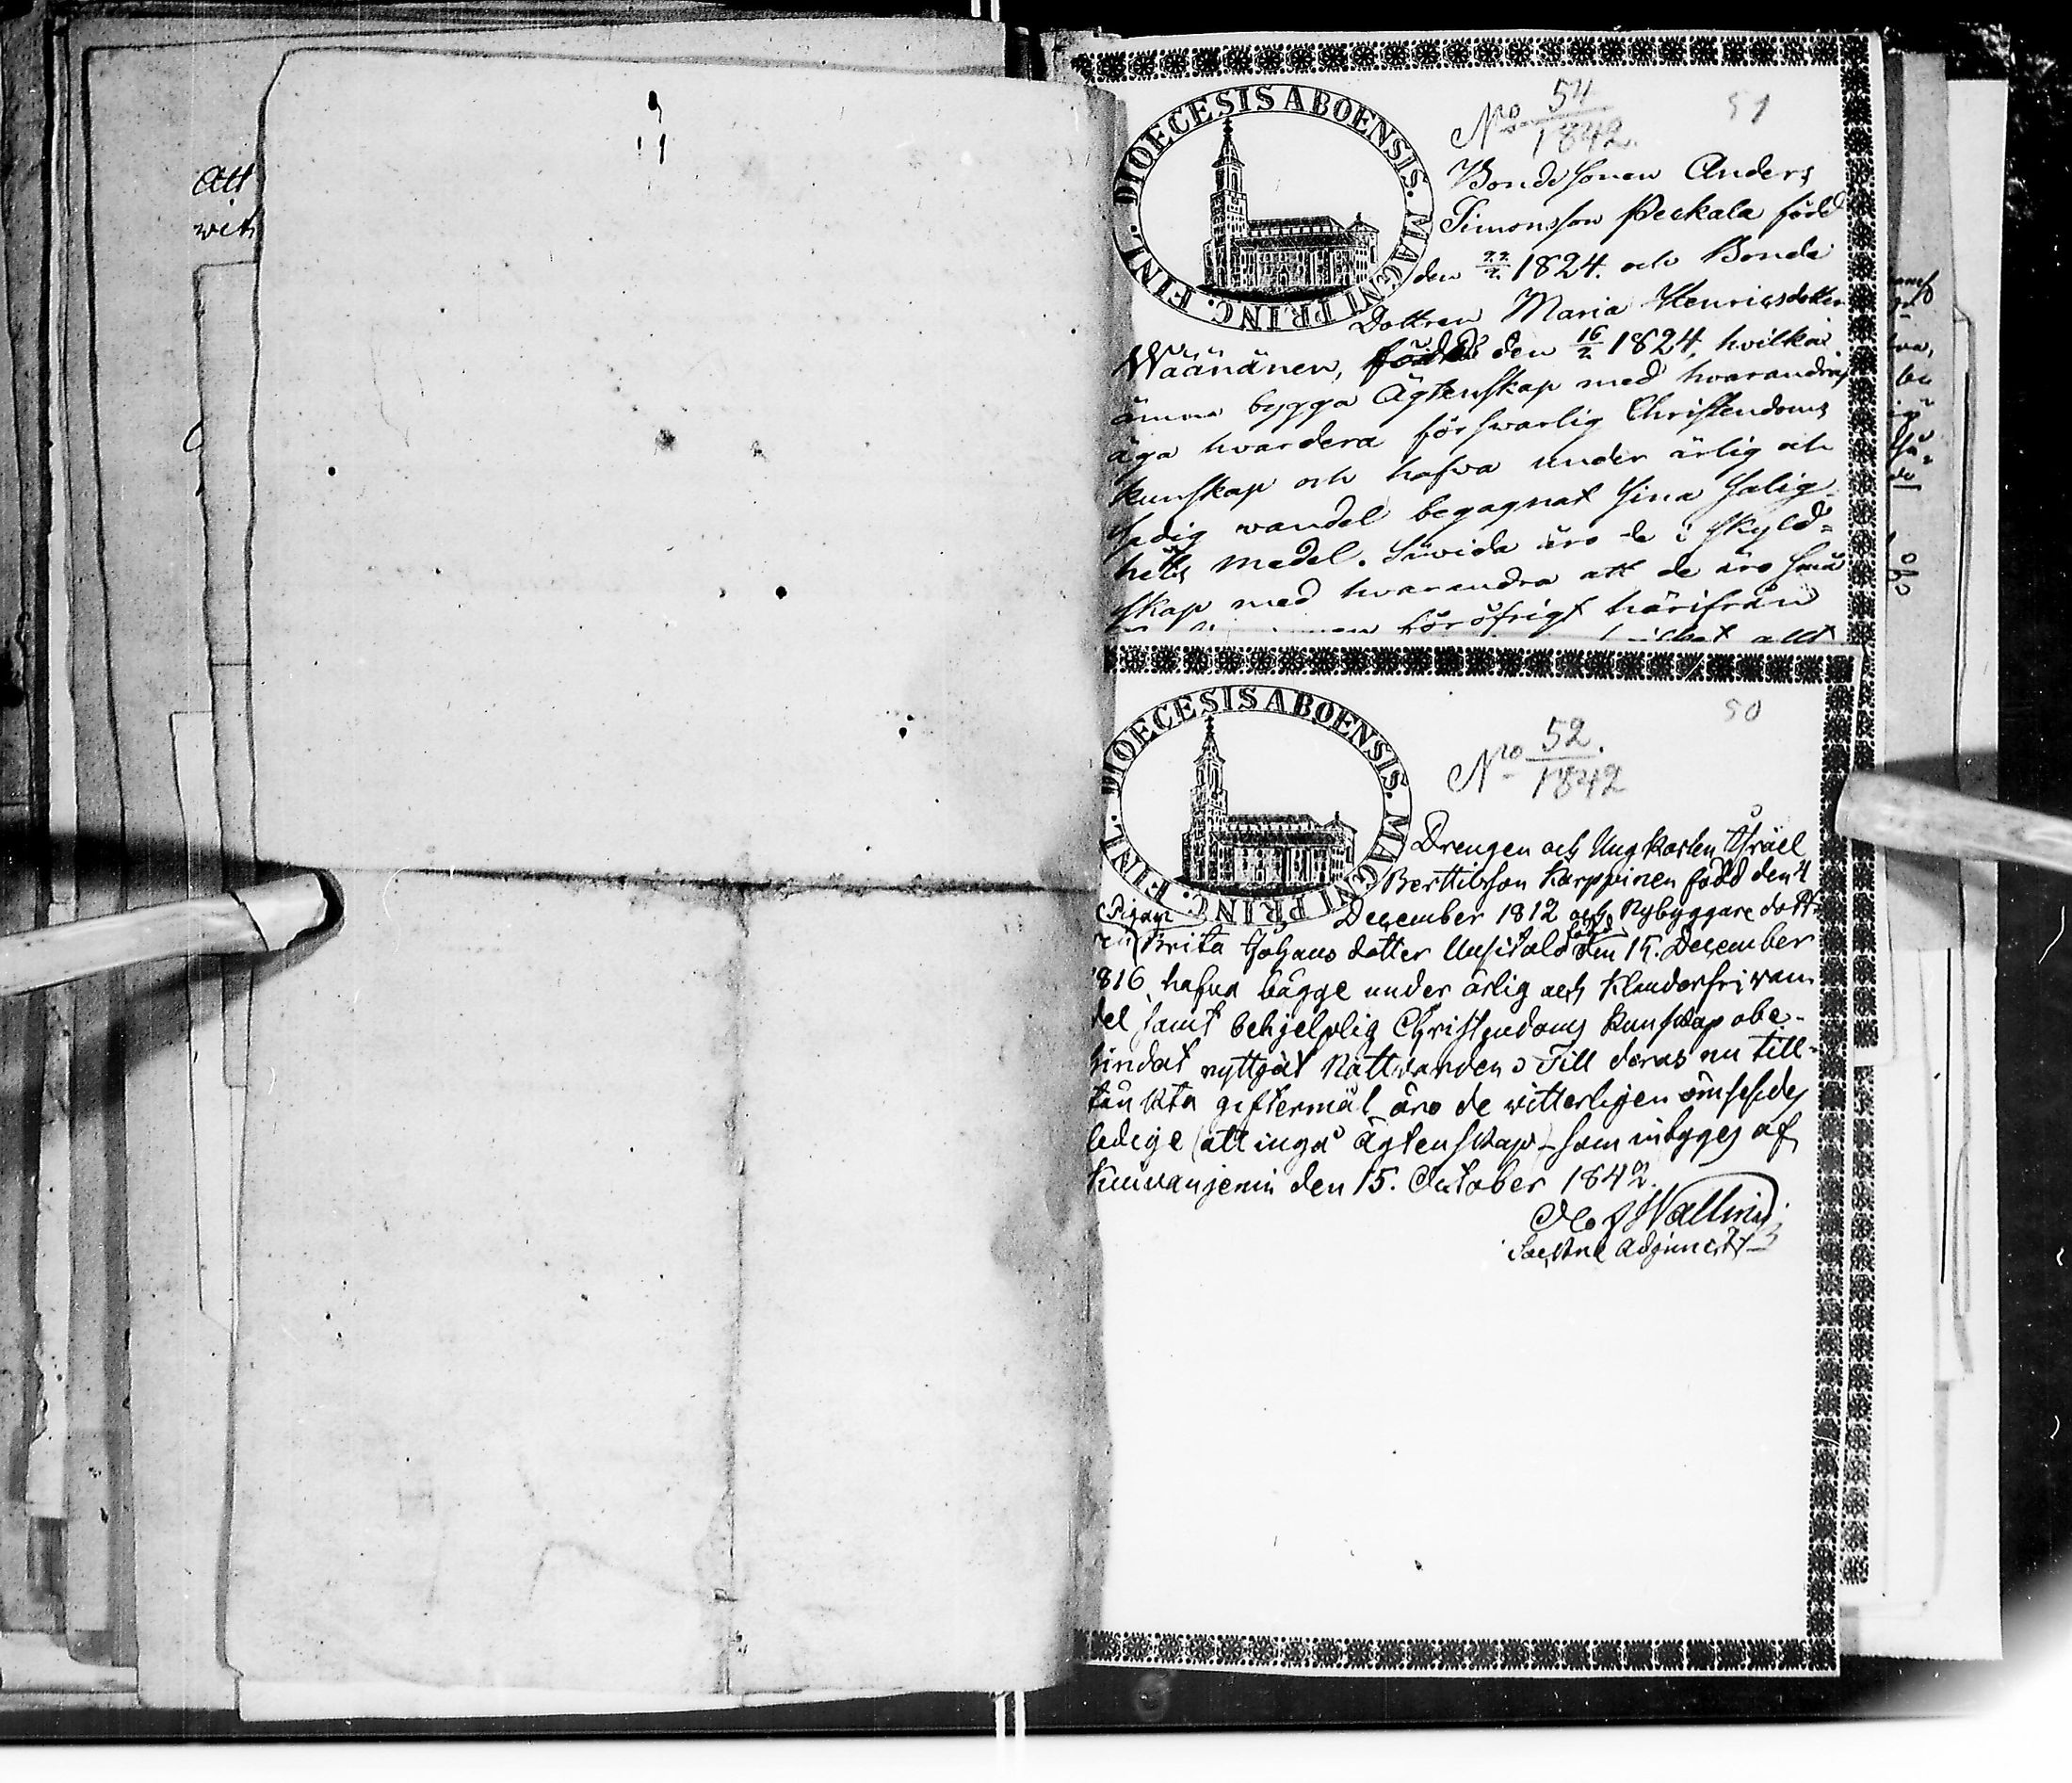 Att
DIOECESIS ABOENSIS. MAGNI PRINC. FINL.
No 54
1842.
51
Bonde sonen Anders
Simonsson Peckala född
den 22/2 1824. och Bonde
Dottren Maria Henricsdotter
Wäänänen, född den 16/2 1824, hvilka
ämna bygga Ägtenskap med hvarandra
äga hvardera förswarlig Christendoms
kunskap och hafva under ärlig och
sedig wandel begagnat sina salig-
hets medel. Såvida äro de i skyld=
skap med hvarandra att de äro små
föröfrigt härifrån
allt
DIOECESIS ABOENSIS. MAGNI PRINC. FINL.
No 52.
1842
50
Drengen och Ungkarlen Israel
Berttilsson Karppinen född den 4
December 1812 och Nybyggare dott-
ren Pigan Brita Johans dotter Uusitalo född den 15. December
1816, hafva bägge under ärlig och klanderfri van-
del samt behjelplig Christendoms kunskap obe-
hindrat nyttjat Nattvarden. Till deras nu till-
tänkta giftermål äro de vitterligen ömsesides
ledige att ingå Ägtenskap - som intygas af
Kiuvanjemi den 15. October 1842.
Wallin
Sockne Adjunct